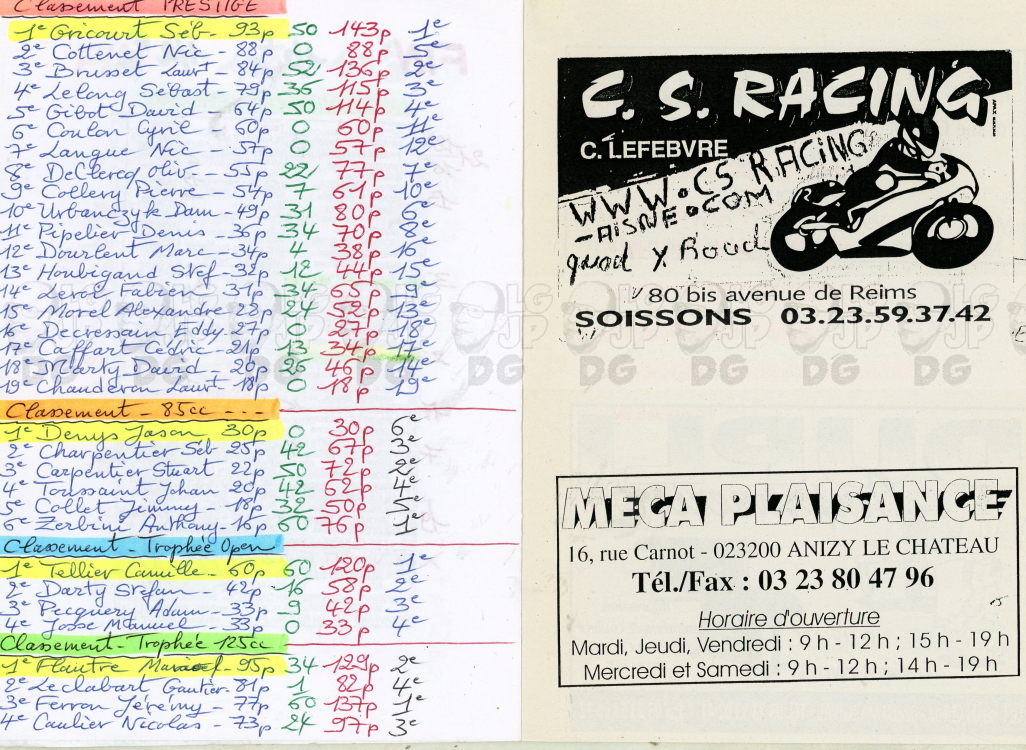 Classement PRESTIGE
1e Gricourt Séb - 93p 50 143p 1e
2e Cottenet Nic - 88p 0 88p 5e
3e Brusset Laurt - 84p 52 136p 2e
4e Lelong Sébast - 79p 36 115p 3e
5e Gibot David - 64p 50 114p 4e
6e Coulon Cyril - 60p 0 60p 11e
7e Langue Nic - 57p 0 57p 12e
8e DeClercq Oliv - - 55p 22 77p 7e
9e Collery Pierre - 54p 7 61p 10e
10e Urbanczyk Dam - 49p 31 80p 6e
11e Pipelier Denis - 36p 34 70p 8e
12e Dourlent Marc - 34p 4 38p 16e
13e Houbigand Stef - 32p 12 44p 15e
14e Lerol Fabien - 31p 34 65p 9e
15e Morel Alexandre 28p 24 52p 13e
16e Decressain Eddy - 27p 0 27p 18e
17e Caffart Cédric - 21p 13 34p 17e
18e Marty David - 20p 26 46p 14e
19e Chauderon Laurt - 18p 0 18p 19e
Classement - 85cc - - -
1e Denys Jason 30p 0 30p 6e
2e Charpentier Séb 25p 42 67p 3e
3e Carpentier Stuart 22p 50 72p 2e
4e Toussaint Johan 20p 42 62p 4e
5e Collet Jimmy - 18p 32 50p 5e
6e Zerbini Anthony - 16p 60 76p 1e
Classement - Trophée Open
1e Tellier Camille - 60p 60 120p 1e
2e Darty Stefan - 42p 16 58p 2e
3e Pecquery Adam - 33p 9 42p 3e
4e Josse Manuel - 33p 0 33p 4e
Classement - Trophée 125cc
1e Flautre - 95p 34 129p 2e
2e Leclabart Gautier - 81p 1 82p 4e
3e Ferron Jérémy - 77p 60 137p 1e
4e Caulier Nicolas - 73p 24 97p 3e
C. S. RACING
C. LEFEBVRE
WWW.CS RACING
-AISNE.COM
quad Y Road
80 bis avenue de Reims
SOISSONS 03.23.59.37.42
LG JP DG
MEGA PLAISANCE
16, rue Carnot - 023200 ANIZY LE CHATEAU
Tél./Fax : 03 23 80 47 96
Horaire d'ouverture
Mardi, Jeudi, Vendredi : 9 h - 12 h ; 15 h - 19 h
Mercredi et Samedi : 9 h - 12 h ; 14 h - 19 h